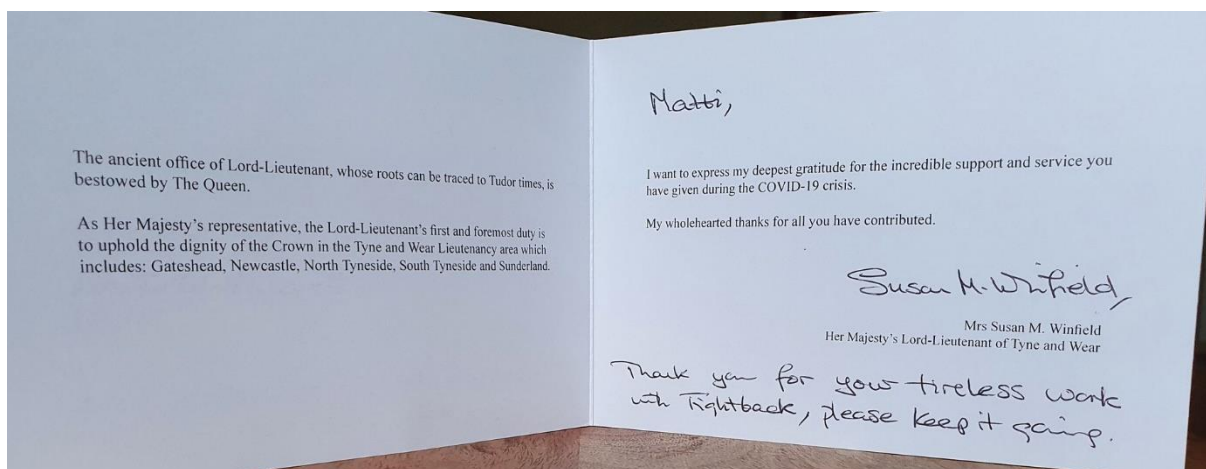 The ancient office of Lord-Lieutenant, whose roots can be traced to Tudor times, is
bestowed by The Queen.
As Her Majesty's representative, the Lord-Lieutenant's first and foremost duty is
to uphold the dignity of the Crown in the Tyne and Wear Lieutenancy area which
includes: Gateshead, Newcastle, North Tyneside, South Tyneside and Sunderland.
Matti,
I want to express my deepest gratitude for the incredible support and service you
have given during the COVID-19 crisis.
My wholehearted thanks for all you have contributed.
Susan M. Winfield,
Mrs Susan M. Winfield
Her Majesty's Lord-Lieutenant of Tyne and Wear
Thank you for your tireless work
with Fightback, please keep it going.